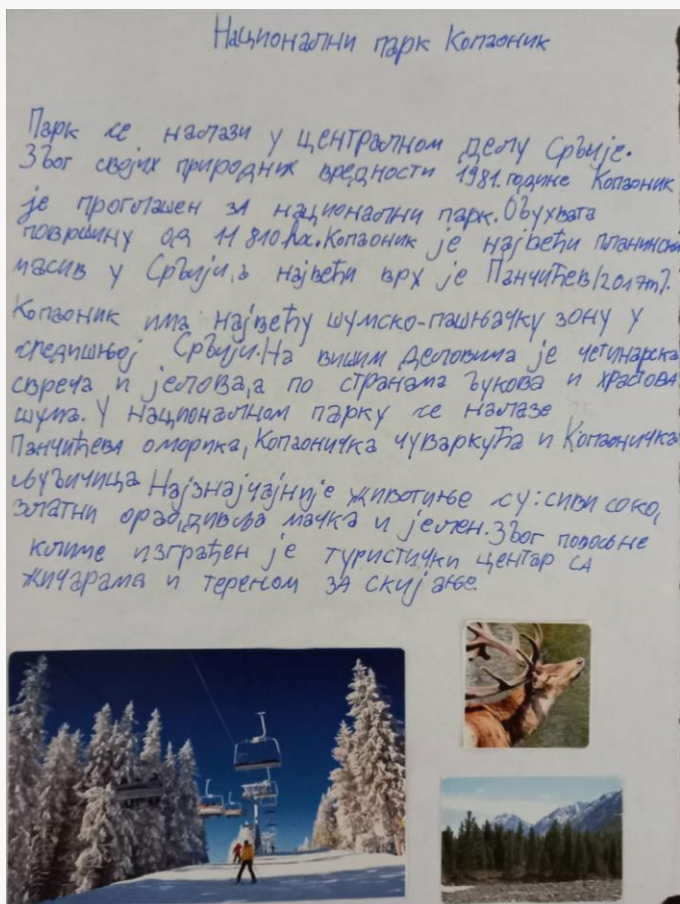 Национални парк Копаоник
Парк се налази у централном делу Србије.
Због својих природних вредности 1981. године Копаоник
је проглашен за национални парк. Обухвата
површину од 11 810 ha. Копаоник је највећи планински
масив у Србији, а највећи врх је Панчићев (2017m).
Копаоник има највећу шумско-пашњачку зону у
средишњој Србији. На вишим деловима је четинарска
свреча и јелова, а по странама букова и храстова
шума. У националном парку се налазе
Панчићева оморика, Копаоничка чуваркућа и Копаоничка
љубичица. Најзначајније животиње су: сиви соко,
златни орао, дивља мачка и јелен. Због повољне
климе изграђен је туристички центар са
жичарама и тереном за скијање.